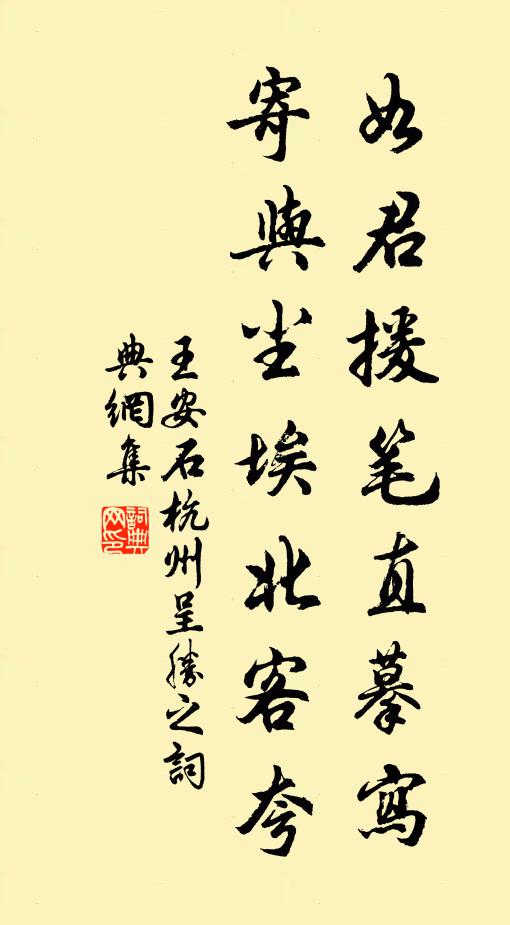 如君援笔直摹寫
寄與尘埃北客夸
王安石杭州呈勝之詞
典網集
詞典
网印